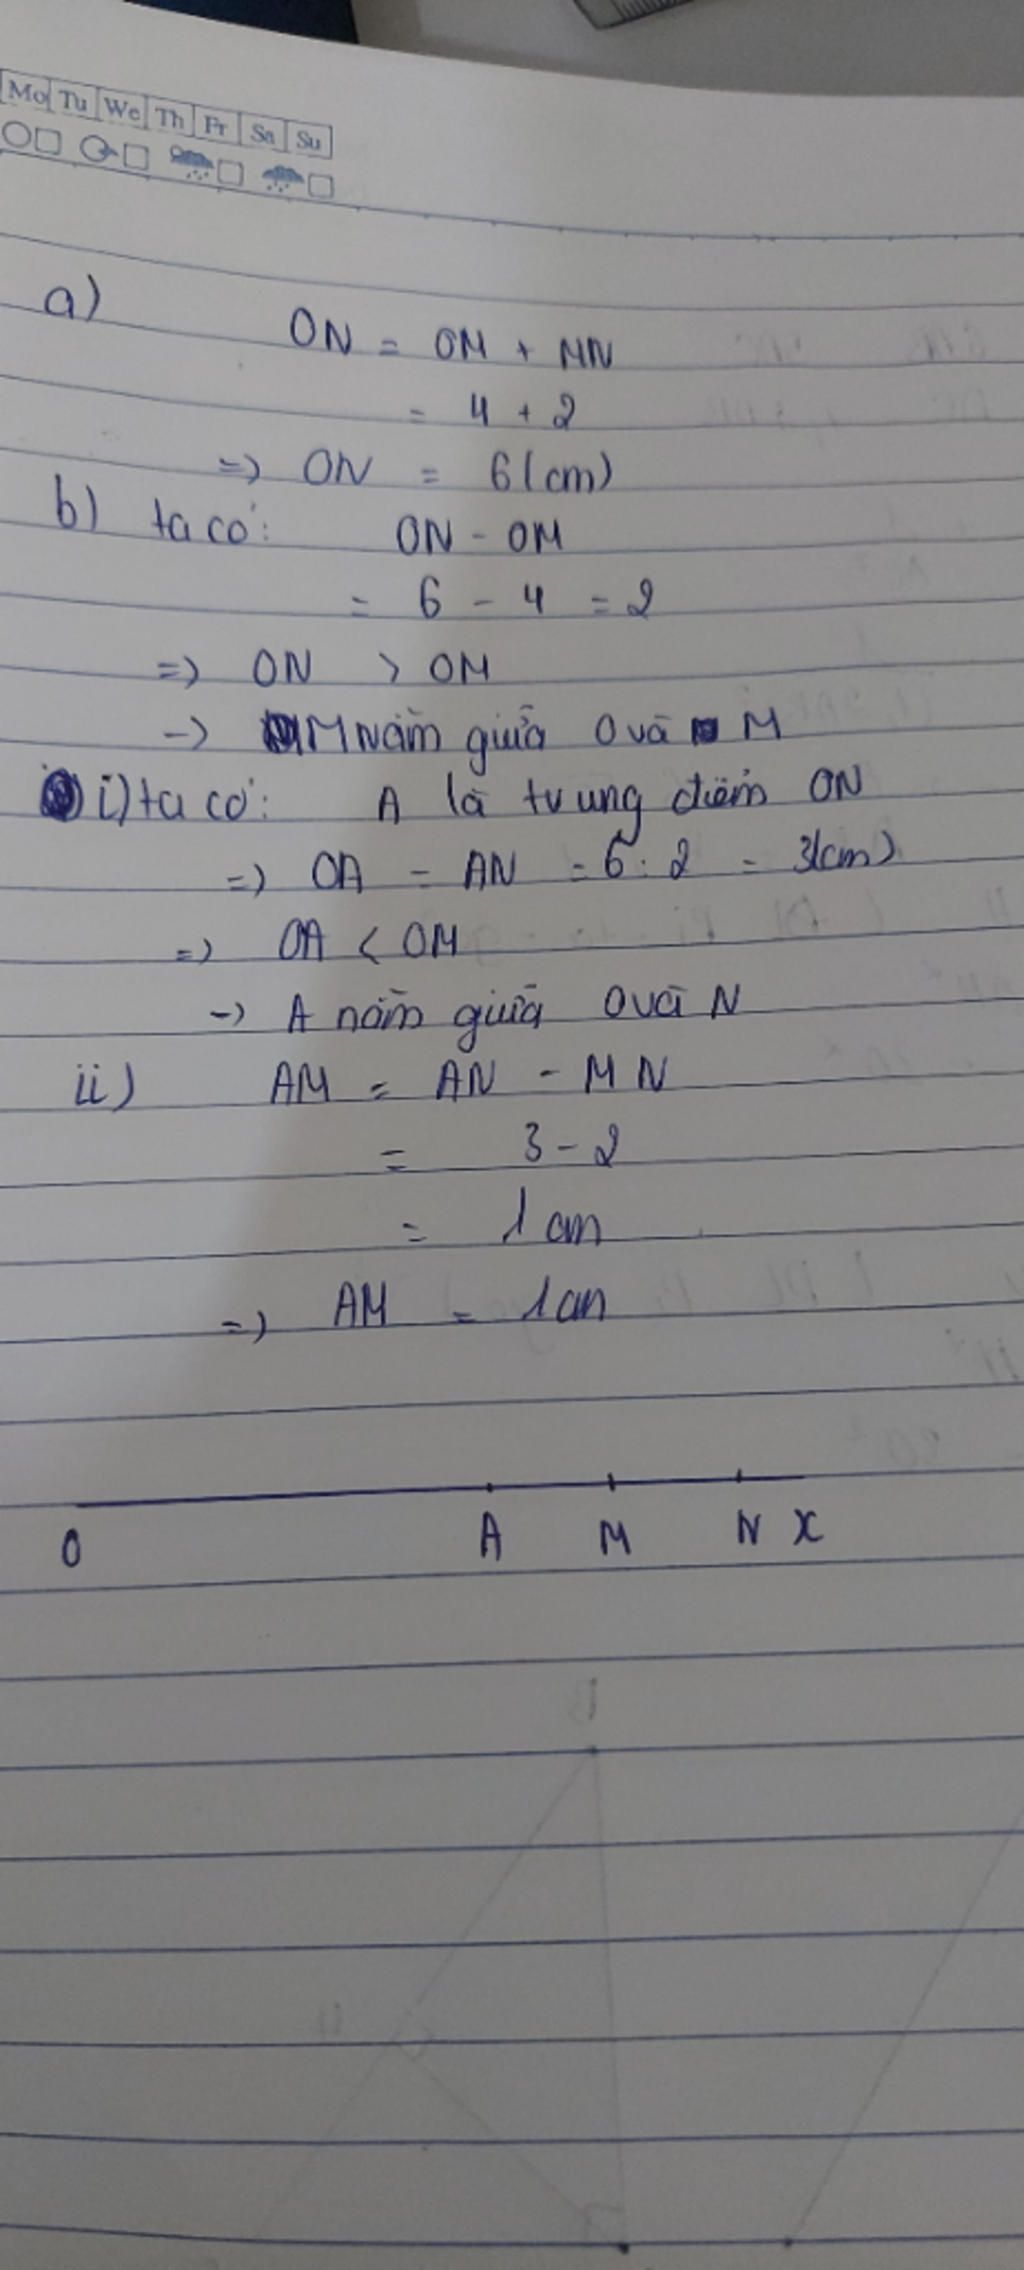 Mo Tu We Th Fr Sa Su
a)
ON = OM + MN
= 4 + 2
=) ON = 6(cm)
b) ta có: ON - OM
= 6 - 4 = 2
=) ON > OM
-) M nằm giữa O và M
i) ta có: A là trung điểm ON
=) OA = AN = 6 : 2 = 3(cm)
=) OA < OM
-) A nằm giữa O và N
ii) AM = AN - MN
= 3 - 2
= 1 cm
=) AM = 1cm
O A M N x